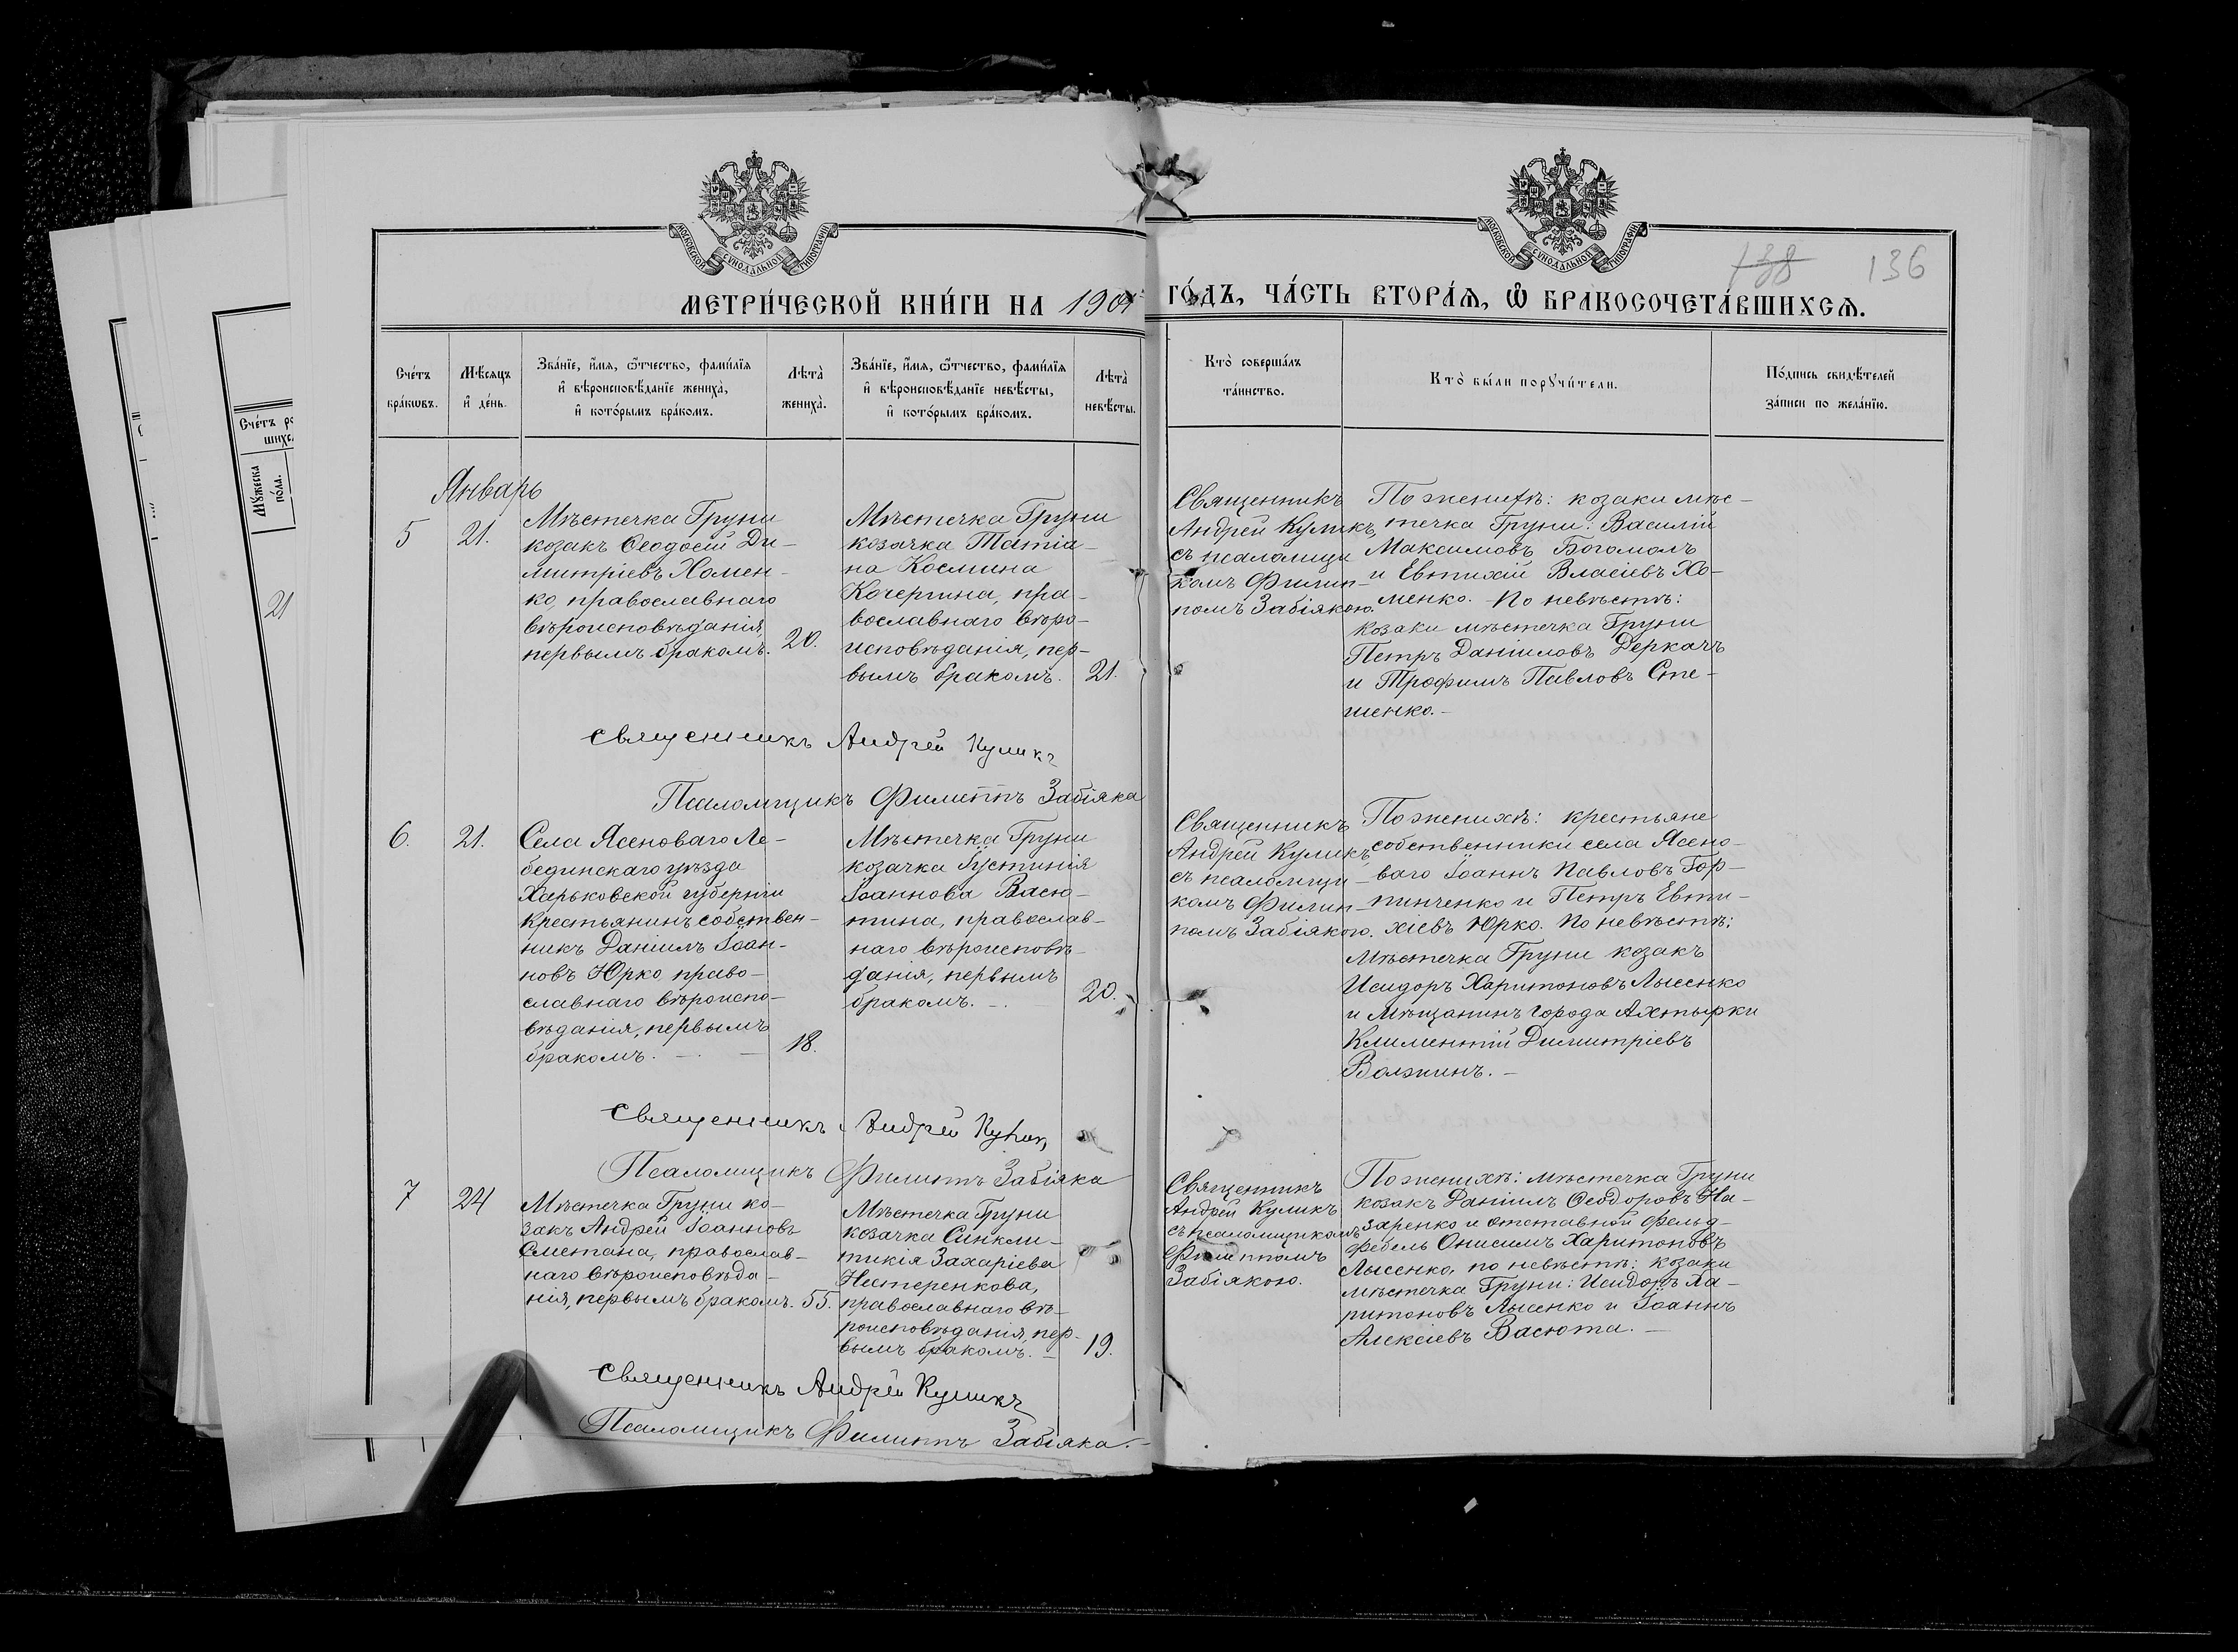 МОСКОВСКОЙ СУНОДАЛЬНОЙ ТИПОГРАФІИ
МОСКОВСКОЙ СУНОДАЛЬНОЙ ТИПОГРАФІИ
138 136
МЕТРИ́ЧЕСКОЙ КНИ́ГИ НА 1901 ГО́ДЪ, ЧА́СТЬ ВТОРА́Ѧ, Ѽ БРАКОСОЧЕТА́ВШИХСѦ.
Сче́тъ
бра́кѡвъ.
Мѣ́сѧцъ
и҆ де́нь.
Зва́нїе, и҆́мѧ, ѻ҆́тчество, фами́лїѧ
и҆ вѣроисповѣ́данїе жениха̀,
и҆ кото́рымъ бра́комъ.
Лѣта̀
жениха̀.
Зва́нїе, и҆́мѧ, ѻ҆́тчество, фами́лїѧ
и҆ вѣроисповѣ́данїе невѣ́сты,
и҆ кото́рымъ бра́комъ.
Лѣта̀
невѣ́сты.
Кто̀ соверша́лъ
та́инство.
Кто̀ бы́ли порꙋчи́тели.
По́дпись свидѣ́телей
за́писи по жела́нїю.
Сче́тъ ро
шихс
Мꙋ́жеска
по́ла.
21
Январь
5
21.
Мѣстечка Груни
козакъ Ѳеодосій Ди-
митріевъ Хомен-
ко, православнаго
вѣроисповѣданія,
первымъ бракомъ.
20.
Мѣстечка Груни
козачка Татіа-
на Космина
Кочергина, пра-
вославнаго вѣро-
исповѣданія, пер-
вымъ бракомъ.
21.
Священникъ
Андрей Куликъ,
съ псаломщи
комъ Филип-
помъ Забіякою.
По женихѣ: козаки мѣс-
течка Груни: Василій
Максимовъ Богомолъ
и Евтихій Власіевъ Хо-
менко. По невѣстѣ:
козаки мѣстечка Груни
Петръ Даніиловъ Деркачъ
и Трофимъ Павловъ Сте-
шенко.-
Священникъ Андрей Куликъ
Псаломщикъ Филиппъ Забіяка
6.
21.
Села Ясеноваго Ле-
бединскаго уѣзда
Харьковской губерніи
Крестьянинъ собствен-
никъ Даніилъ Іоан-
новъ Юрко, право-
славнаго вѣроиспо-
вѣданія, первымъ
бракомъ. -. -
18.
Мѣстечка Груни
козачка Іустинія
Іоаннова Васю-
тина, православ-
наго вѣроисповѣ-
данія, первымъ
бракомъ. -.
20.
Священникъ
Андрей Куликъ,
съ псаломщи-
комъ Филип-
помъ Забіякою.
По женихѣ: крестьяне
собственники села Ясено-
ваго Іоаннъ Павловъ Гор-
пинченко и Петръ Евти-
хіевъ Юрко. По невѣстѣ:
Мѣстечка Груни козакъ
Исидоръ Харитоновъ Лысенко
и Мѣщанинъ города Ахтырки
Климентій Димитріевъ
Волжинъ. -
Священникъ Андрей Куликъ
Псаломщикъ Филиппъ Забіяка
7
24
Мѣстечка Груни ко-
закъ Андрей Іоанновъ
Сметана, православ-
наго вѣроисповѣда-
нія, первымъ бракомъ.
55.
Мѣстечка Груни
козачка Синкли-
тикія Захаріева
Нестеренкова,
православнаго вѣ-
роисповѣданія, пер-
вымъ бракомъ. -
19.
Священникъ
Андрей Куликъ
съ псаломщикомъ
Филиппомъ
Забіякою.
По женихѣ: мѣстечка Груни
козакъ Даніилъ Ѳеодоровъ На-
заренко и отставной фельд-
фебель Онисимъ Харитоновъ
Лысенко, по невѣстѣ: козаки
мѣстечка Груни: Исидоръ Ха-
ритоновъ Лысенко и Іоаннъ
Алексіевъ Васюта. -
Священникъ Андрей Куликъ
Псаломщикъ Филиппъ Забіяка.-